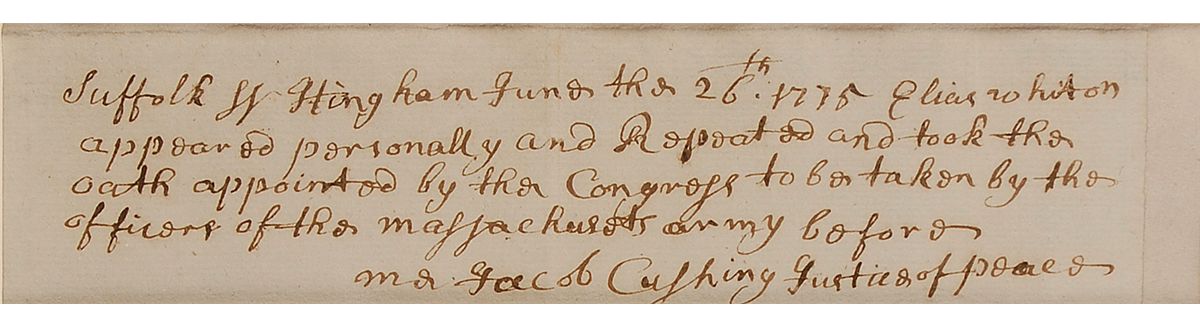 Suffolk ss Hingham June the 26th. 1775 Elias whiton
appeared personally and Repeated and took the
oath appointed by the Congress to be taken by the
officers of the massachusetts army before
me Jacob Cushing Justice of peace